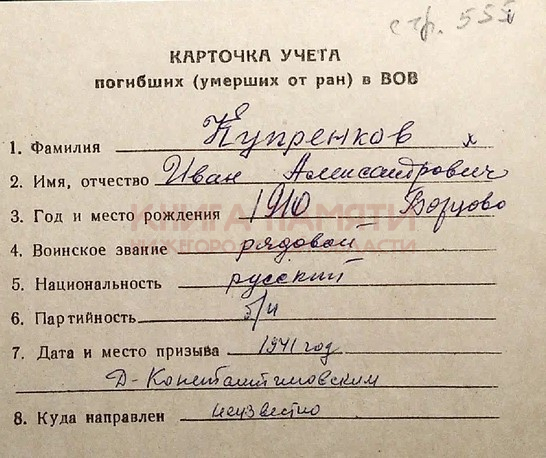 стр. 555
КАРТОЧКА УЧЕТА
погибших (умерших от ран) в ВОВ
1. Фамилия Купренков
2. Имя, отчество Иван Александрович
3. Год и место рождения 1910 Борцово
КНИГА ПАМЯТИ
НИЖЕГОРОДСКОЙ ОБЛАСТИ
4. Воинское звание рядовой
5. Национальность русский
6. Партийность б/п
7. Дата и место призыва 1941 год
Д-Константиновским
8. Куда направлен неизвестно